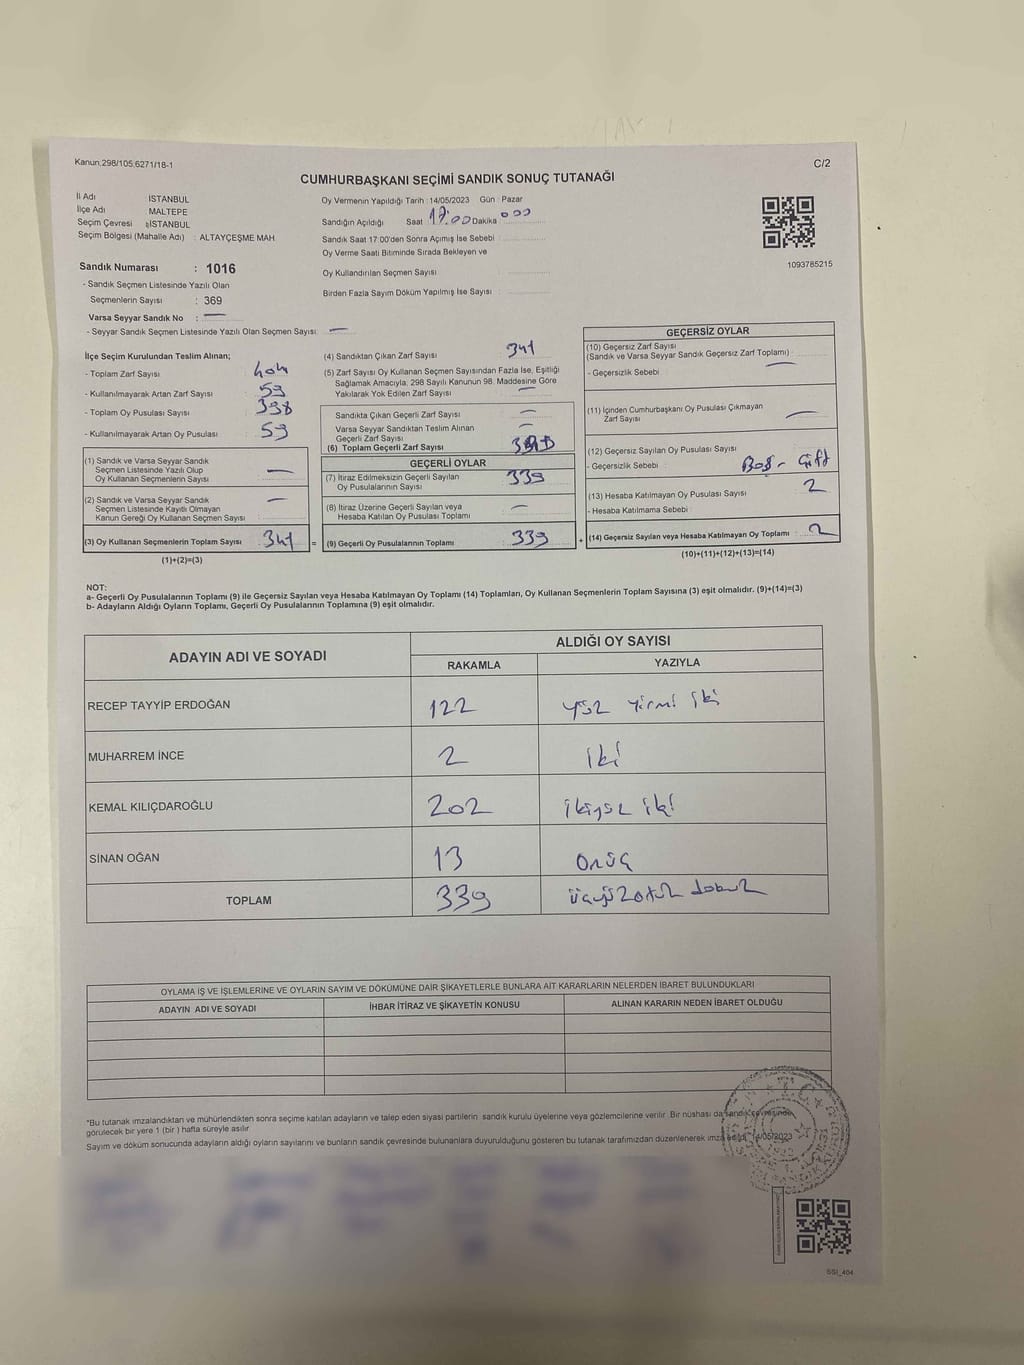 Kanun,298/105,6271/18-1
C/2
CUMHURBAŞKANI SEÇİMİ SANDIK SONUÇ TUTANAĞI
İl Adı İSTANBUL
İlçe Adı MALTEPE
Seçim Çevresi İSTANBUL
Seçim Bölgesi (Mahalle Adı) : ALTAYÇEŞME MAH.
Sandık Numarası : 1016
- Sandık Seçmen Listesinde Yazılı Olan
Seçmenlerin Sayısı : 369
Varsa Seyyar Sandık No : —
- Seyyar Sandık Seçmen Listesinde Yazılı Olan Seçmen Sayısı: —
Oy Vermenin Yapıldığı Tarih : 14/05/2023 Gün : Pazar
Sandığın Açıldığı Saat 17.00 Dakika 000
Sandık Saat 17 00'den Sonra Açımış İse Sebebi :
Oy Verme Saati Bitiminde Sırada Bekleyen ve
Oy Kullandırılan Seçmen Sayısı :
Birden Fazla Sayım Döküm Yapılmış İse Sayısı :
1093785215
İlçe Seçim Kurulundan Teslim Alınan;
- Toplam Zarf Sayısı :
- Kullanılmayarak Artan Zarf Sayısı : 59
- Toplam Oy Pusulası Sayısı : 398
- Kullanılmayarak Artan Oy Pusulası : 59
(1) Sandık ve Varsa Seyyar Sandık
Seçmen Listesinde Yazılı Olup
Oy Kullanan Seçmenlerin Sayısı : —
(2) Sandık ve Varsa Seyyar Sandık
Seçmen Listesinde Kayıtlı Olmayan
Kanun Gereği Oy Kullanan Seçmen Sayısı : —
(3) Oy Kullanan Seçmenlerin Toplam Sayısı : 341
(1)+(2)=(3)
(4) Sandıktan Çıkan Zarf Sayısı : 341
(5) Zarf Sayısı Oy Kullanan Seçmen Sayısından Fazla İse, Eşitliği
Sağlamak Amacıyla, 298 Sayılı Kanunun 98. Maddesine Göre
Yakılarak Yok Edilen Zarf Sayısı : —
Sandıkta Çıkan Geçerli Zarf Sayısı : —
Varsa Seyyar Sandıktan Teslim Alınan
Geçerli Zarf Sayısı : —
(6) Toplam Geçerli Zarf Sayısı :
GEÇERLİ OYLAR
(7) İtiraz Edilmeksizin Geçerli Sayılan
Oy Pusulalarının Sayısı : 339
(8) İtiraz Üzerine Geçerli Sayılan veya
Hesaba Katılan Oy Pusulası Toplamı : —
= (9) Geçerli Oy Pusulalarının Toplamı : 339
GEÇERSİZ OYLAR
(10) Geçersiz Zarf Sayısı
(Sandık ve Varsa Seyyar Sandık Geçersiz Zarf Toplamı) : —
- Geçersizlik Sebebi :
(11) İçinden Cumhurbaşkanı Oy Pusulası Çıkmayan
Zarf Sayısı : —
(12) Geçersiz Sayılan Oy Pusulası Sayısı :
- Geçersizlik Sebebi : Boş - Çift
(13) Hesaba Katılmayan Oy Pusulası Sayısı : 2
- Hesaba Katılmama Sebebi :
+ (14) Geçersiz Sayılan veya Hesaba Katılmayan Oy Toplamı : 2
(10)+(11)+(12)+(13)=(14)
NOT:
a- Geçerli Oy Pusulalarının Toplamı (9) ile Geçersiz Sayılan veya Hesaba Katılmayan Oy Toplamı (14) Toplamları, Oy Kullanan Seçmenlerin Toplam Sayısına (3) eşit olmalıdır. (9)+(14)=(3)
b- Adayların Aldığı Oyların Toplamı, Geçerli Oy Pusulalarının Toplamına (9) eşit olmalıdır.
ADAYIN ADI VE SOYADI
ALDIĞI OY SAYISI
RAKAMLA YAZIYLA
RECEP TAYYİP ERDOĞAN 122 yüz yirmi iki
MUHARREM İNCE 2 iki
KEMAL KILIÇDAROĞLU 202 ikiyüz iki
SİNAN OĞAN 13 onüç
TOPLAM 339 üçyüzotuz dokuz
OYLAMA İŞ VE İŞLEMLERİNE VE OYLARIN SAYIM VE DÖKÜMÜNE DAİR ŞİKAYETLERLE BUNLARA AİT KARARLARIN NELERDEN İBARET BULUNDUKLARI
ADAYIN ADI VE SOYADI İHBAR İTİRAZ VE ŞİKAYETİN KONUSU ALINAN KARARIN NEDEN İBARET OLDUĞU
*Bu tutanak imzalandıktan ve mühürlendikten sonra seçime katılan adayların ve talep eden siyasi partilerin sandık kurulu üyelerine veya gözlemcilerine verilir. Bir nüshası da sandık çevresinde
görülecek bir yere 1 (bir ) hafta süreyle asılır.
Sayım ve döküm sonucunda adayların aldığı oyların sayılarını ve bunların sandık çevresinde bulunanlara duyurulduğunu gösteren bu tutanak tarafımızdan düzenlenerek imza edildi. 14/05/2023
T.C.
SSI_404